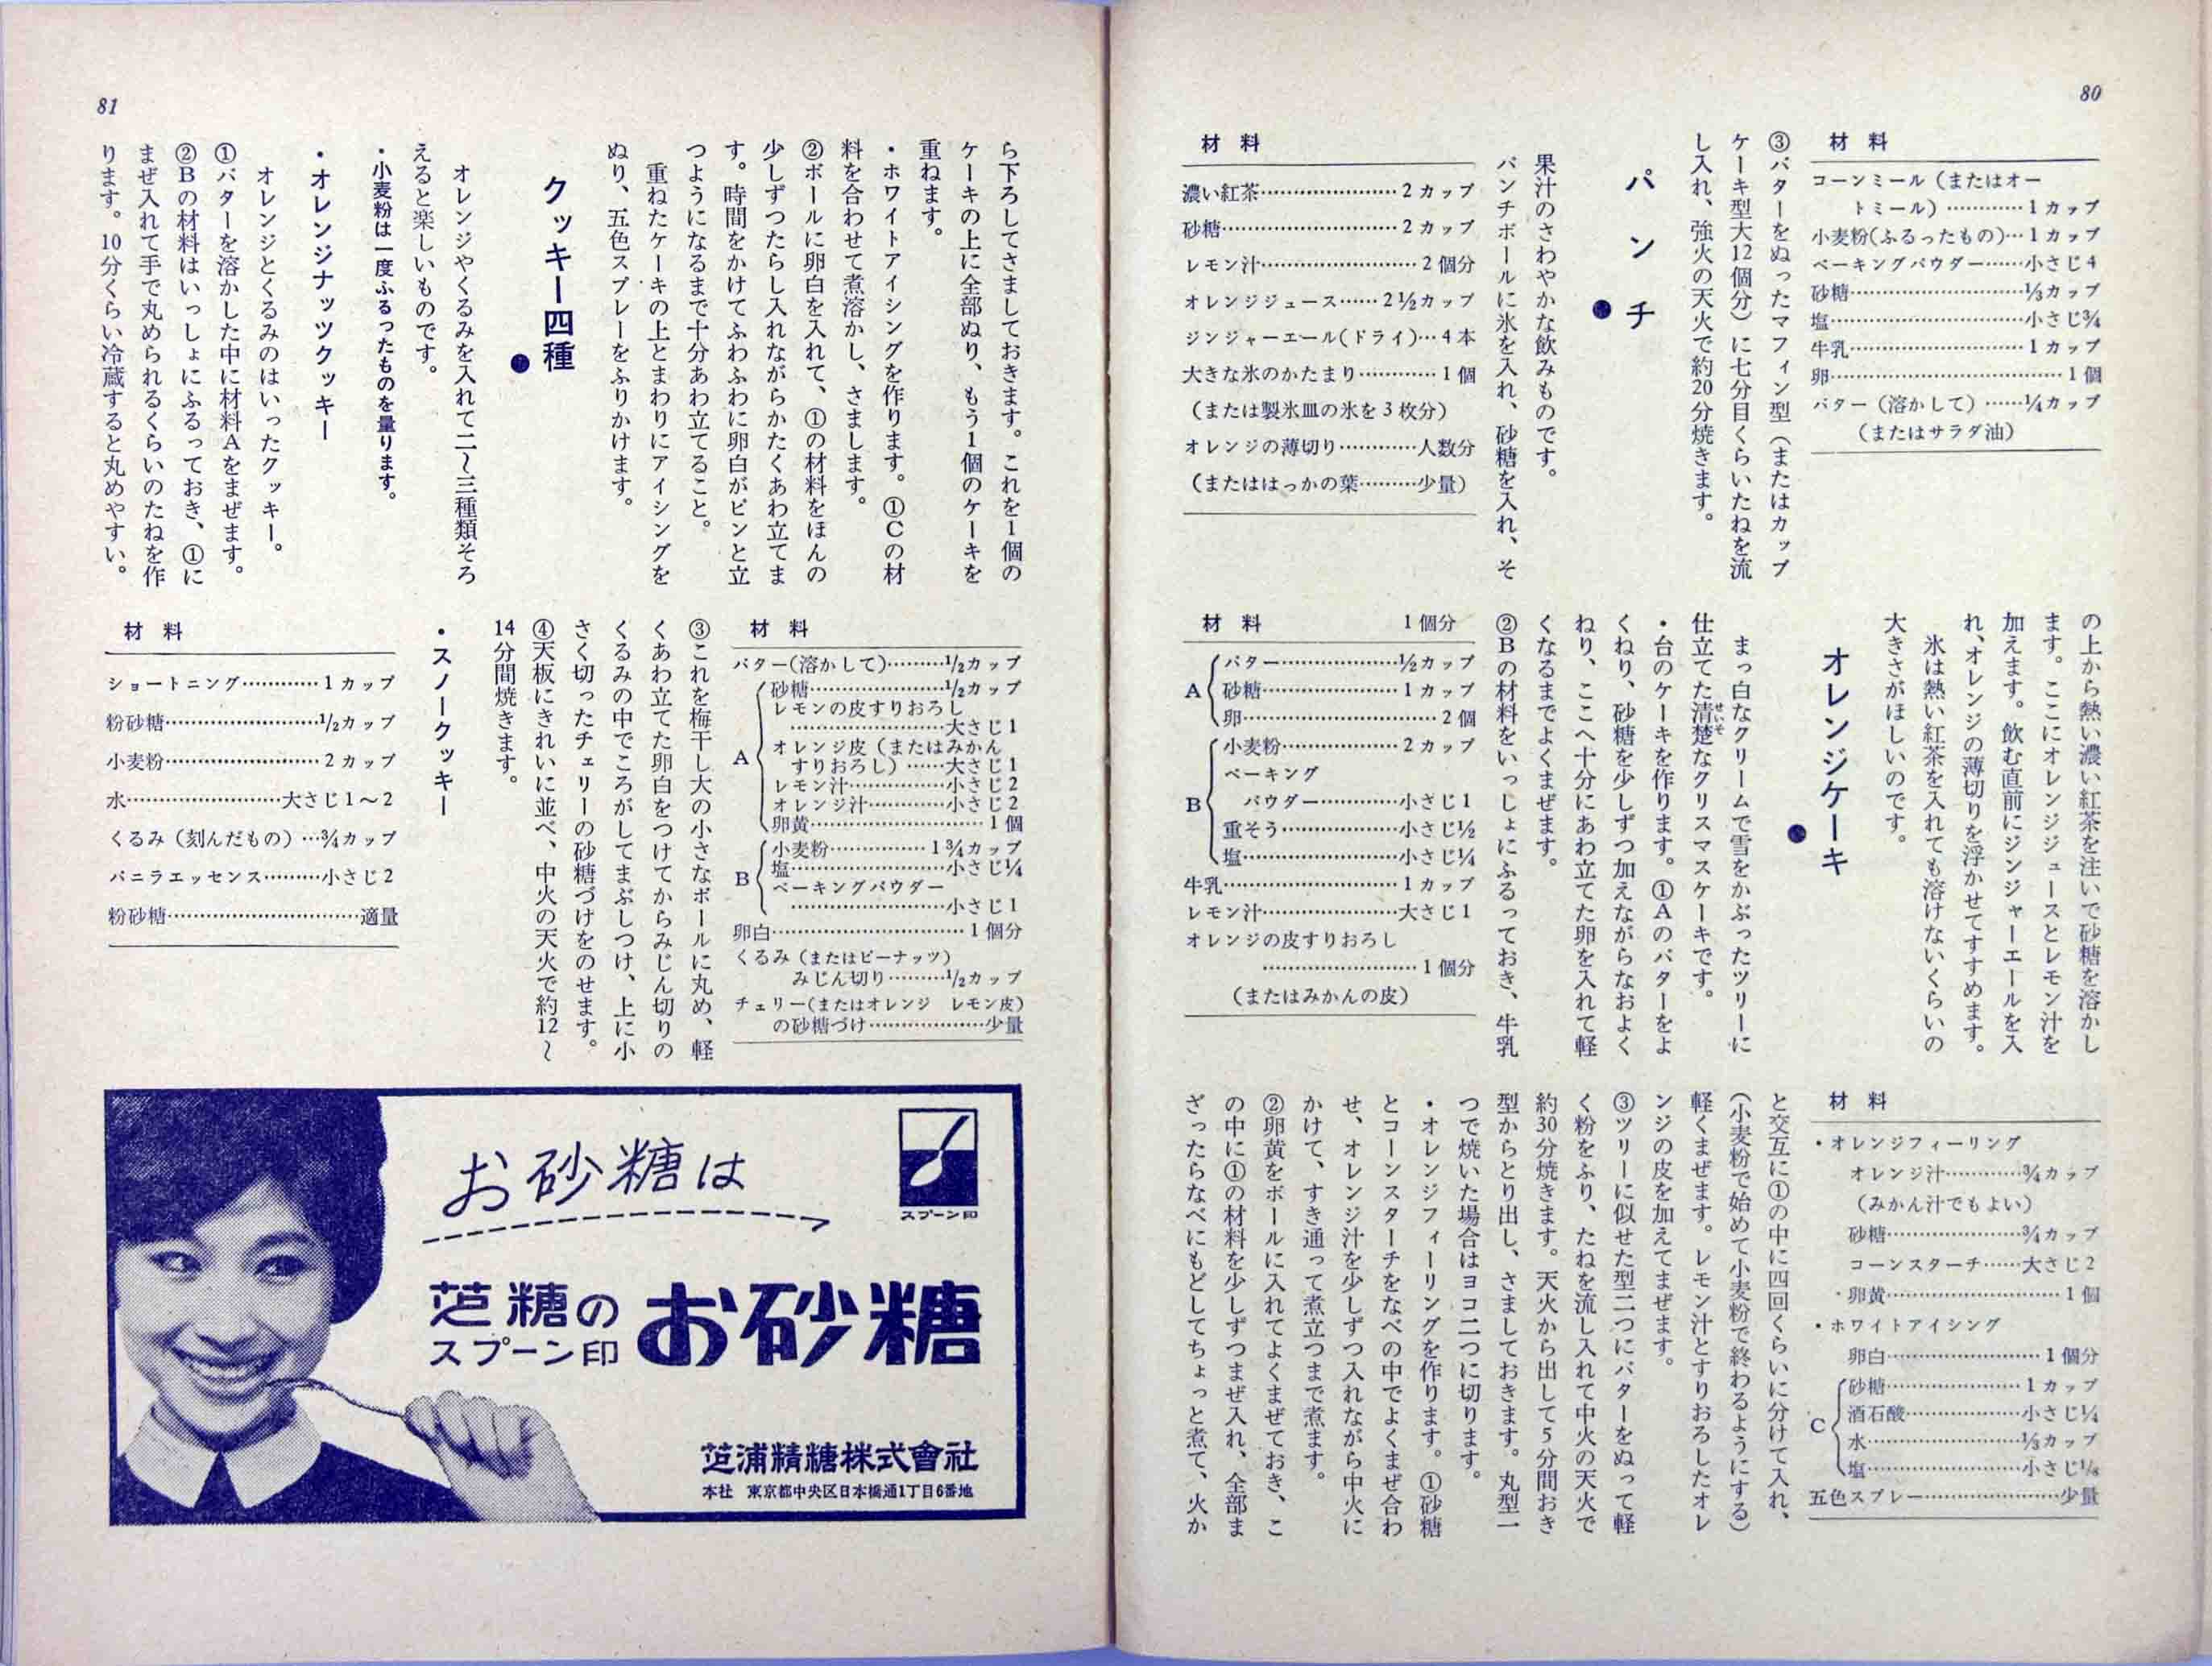 80
材料
コーンミール（またはオー
トミール）…………1カップ
小麦粉(ふるったもの)…1カップ
ベーキングパウダー……小さじ4
砂糖……………………⅓カップ
塩………………………小さじ¾
牛乳……………………1カップ
卵…………………………1個
バター（溶かして）……¼カップ
（またはサラダ油）
③バターをぬったマフィン型（またはカップ
ケーキ型大12個分）に七分目くらいたねを流
し入れ、強火の天火で約20分焼きます。
パンチ●
果汁のさわやかな飲みものです。
パンチボールに氷を入れ、砂糖を入れ、そ
材料
濃い紅茶…………………2カップ
砂糖………………………2カップ
レモン汁…………………2個分
オレンジジュース……2½カップ
ジンジャーエール(ドライ)…4本
大きな氷のかたまり…………1個
（または製氷皿の氷を3枚分）
オレンジの薄切り…………人数分
（またははっかの葉………少量）
の上から熱い濃い紅茶を注いで砂糖を溶かし
ます。ここにオレンジジュースとレモン汁を
加えます。飲む直前にジンジャーエールを入
れ、オレンジの薄切りを浮かせてすすめます。
氷は熱い紅茶を入れても溶けないくらいの
大きさがほしいのです。
オレンジケーキ●
まっ白なクリームで雪をかぶったツリーに
仕立てた清楚なクリスマスケーキです。
せいそ
・台のケーキを作ります。①Aのバターをよ
くねり、砂糖を少しずつ加えながらなおよく
ねり、ここへ十分にあわ立てた卵を入れて軽
くなるまでよくまぜます。
②Bの材料をいっしょにふるっておき、牛乳
材料　1個分
A
バター………………½カップ
砂糖…………………1カップ
卵………………………2個
B
小麦粉………………2カップ
ベーキング
パウダー…………小さじ1
重そう………………小さじ½
塩……………………小さじ¼
牛乳……………………1カップ
レモン汁…………………大さじ1
オレンジの皮すりおろし
……………………1個分
（またはみかんの皮）
材料
・オレンジフィーリング
オレンジ汁…………¾カップ
（みかん汁でもよい）
砂糖…………………¾カップ
コーンスターチ……大さじ2
・卵黄……………………1個
・ホワイトアイシング
卵白……………………1個分
C
砂糖…………………1カップ
酒石酸………………小さじ¼
水……………………⅓カップ
塩……………………小さじ⅛
五色スプレー…………………少量
と交互に①の中に四回くらいに分けて入れ、
（小麦粉で始めて小麦粉で終わるようにする）
軽くまぜます。レモン汁とすりおろしたオレ
ンジの皮を加えてまぜます。
③ツリーに似せた型二つにバターをぬって軽
く粉をふり、たねを流し入れて中火の天火で
約30分焼きます。天火から出して5分間おき
型からとり出し、さましておきます。丸型一
つで焼いた場合はヨコ二つに切ります。
・オレンジフィーリングを作ります。①砂糖
とコーンスターチをなべの中でよくまぜ合わ
せ、オレンジ汁を少しずつ入れながら中火に
かけて、すき通って煮立つまで煮ます。
②卵黄をボールに入れてよくまぜておき、こ
の中に①の材料を少しずつまぜ入れ、全部ま
ざったらなべにもどしてちょっと煮て、火か
81
ら下ろしてさましておきます。これを1個の
ケーキの上に全部ぬり、もう1個のケーキを
重ねます。
・ホワイトアイシングを作ります。①Cの材
料を合わせて煮溶かし、さまします。
②ボールに卵白を入れて、①の材料をほんの
少しずつたらし入れながらかたくあわ立てま
す。時間をかけてふわふわに卵白がピンと立
つようになるまで十分あわ立てること。
重ねたケーキの上とまわりにアイシングを
ぬり、五色スプレーをふりかけます。
クッキー四種●
オレンジやくるみを入れて二～三種類そろ
えると楽しいものです。
・小麦粉は一度ふるったものを量ります。
・オレンジナッツクッキー
オレンジとくるみのはいったクッキー。
①バターを溶かした中に材料Aをまぜます。
②Bの材料はいっしょにふるっておき、①に
まぜ入れて手で丸められるくらいのたねを作
ります。10分くらい冷蔵すると丸めやすい。
材料
バター(溶かして)………½カップ
A
砂糖…………………½カップ
レモンの皮すりおろし
……………………大さじ1
オレンジ皮（またはみかん
すりおろし）……大さじ1
レモン汁……………小さじ2
オレンジ汁…………小さじ2
卵黄……………………1個
B
小麦粉……………1¾カップ
塩……………………小さじ¼
ベーキングパウダー
……………………小さじ1
卵白………………………1個分
くるみ（またはピーナッツ）
みじん切り………½カップ
チェリー(またはオレンジ　レモン皮)
の砂糖づけ………………少量
③これを梅干し大の小さなボールに丸め、軽
くあわ立てた卵白をつけてからみじん切りの
くるみの中でころがしてまぶしつけ、上に小
さく切ったチェリーの砂糖づけをのせます。
④天板にきれいに並べ、中火の天火で約12～
14分間焼きます。
・スノークッキー
材料
ショートニング…………1カップ
粉砂糖……………………½カップ
小麦粉……………………2カップ
水……………………大さじ1～2
くるみ（刻んだもの）…¾カップ
バニラエッセンス………小さじ2
粉砂糖…………………………適量
スプーン印
お砂糖は
芝糖の
スプーン印
お砂糖
芝浦精糖株式會社
本社　東京都中央区日本橋通1丁目6番地